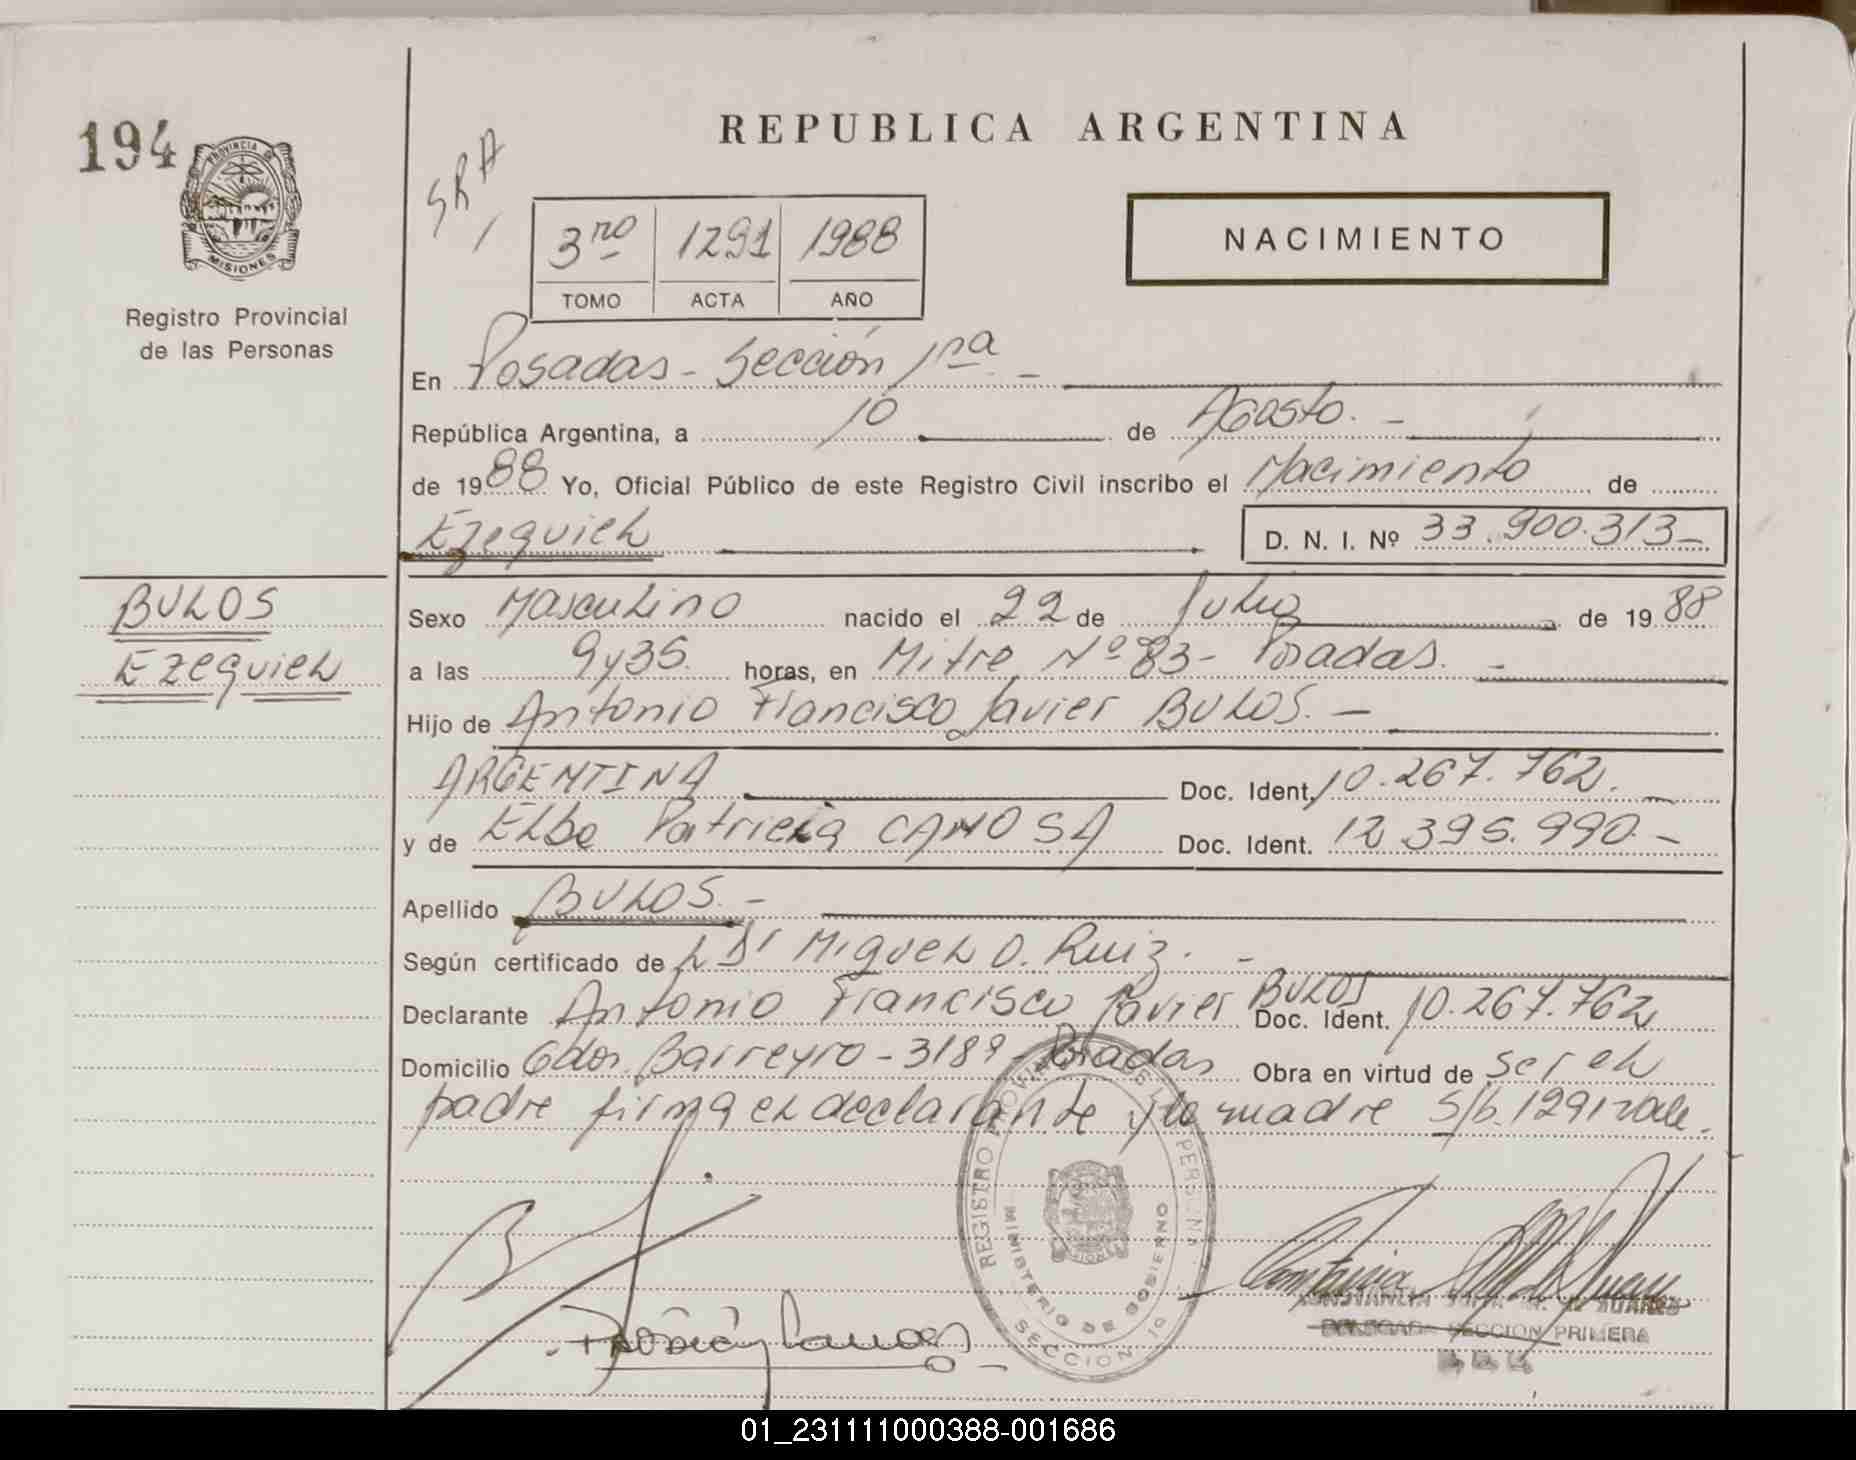 194
PROVINCIA DE
MISIONES
Registro Provincial
de las Personas
REPUBLICA ARGENTINA
SRA
3ro 1291 1988
TOMO ACTA AÑO
NACIMIENTO
En Posadas - Sección 1ra -
República Argentina, a 10 de Agosto. -
de 1988 Yo, Oficial Público de este Registro Civil inscribo el Nacimiento de
Ezequiel D. N. I. Nº 33.900.313-
BULOS
EZequiel
Sexo Masculino nacido el 22 de Julio de 1988
a las 9y35. horas, en Mitre Nº 83 - Posadas. -
Hijo de Antonio Francisco Javier BULOS. -
ARGENTINA Doc. Ident. 10.267.762. -
y de Elba Patricia CANOSA Doc. Ident. 12.395.990. -
Apellido BULOS. -
Según certificado de L Dr Miguel O. Ruiz. -
Declarante Antonio Francisco Javier BULOS Doc. Ident. 10.267.762
Domicilio Gdor. Barreyro - 3189 - Posadas Obra en virtud de ser el
padre firma el declarante y la madre S/b. 1291 vale.
REGISTRO PROVINCIAL DE LAS PERSONAS
MINISTERIO DE GOBIERNO
SECCION 1ª
CONSTANCIA DE SUAREZ
DELEGADA SECCION PRIMERA
01_231111000388-001686